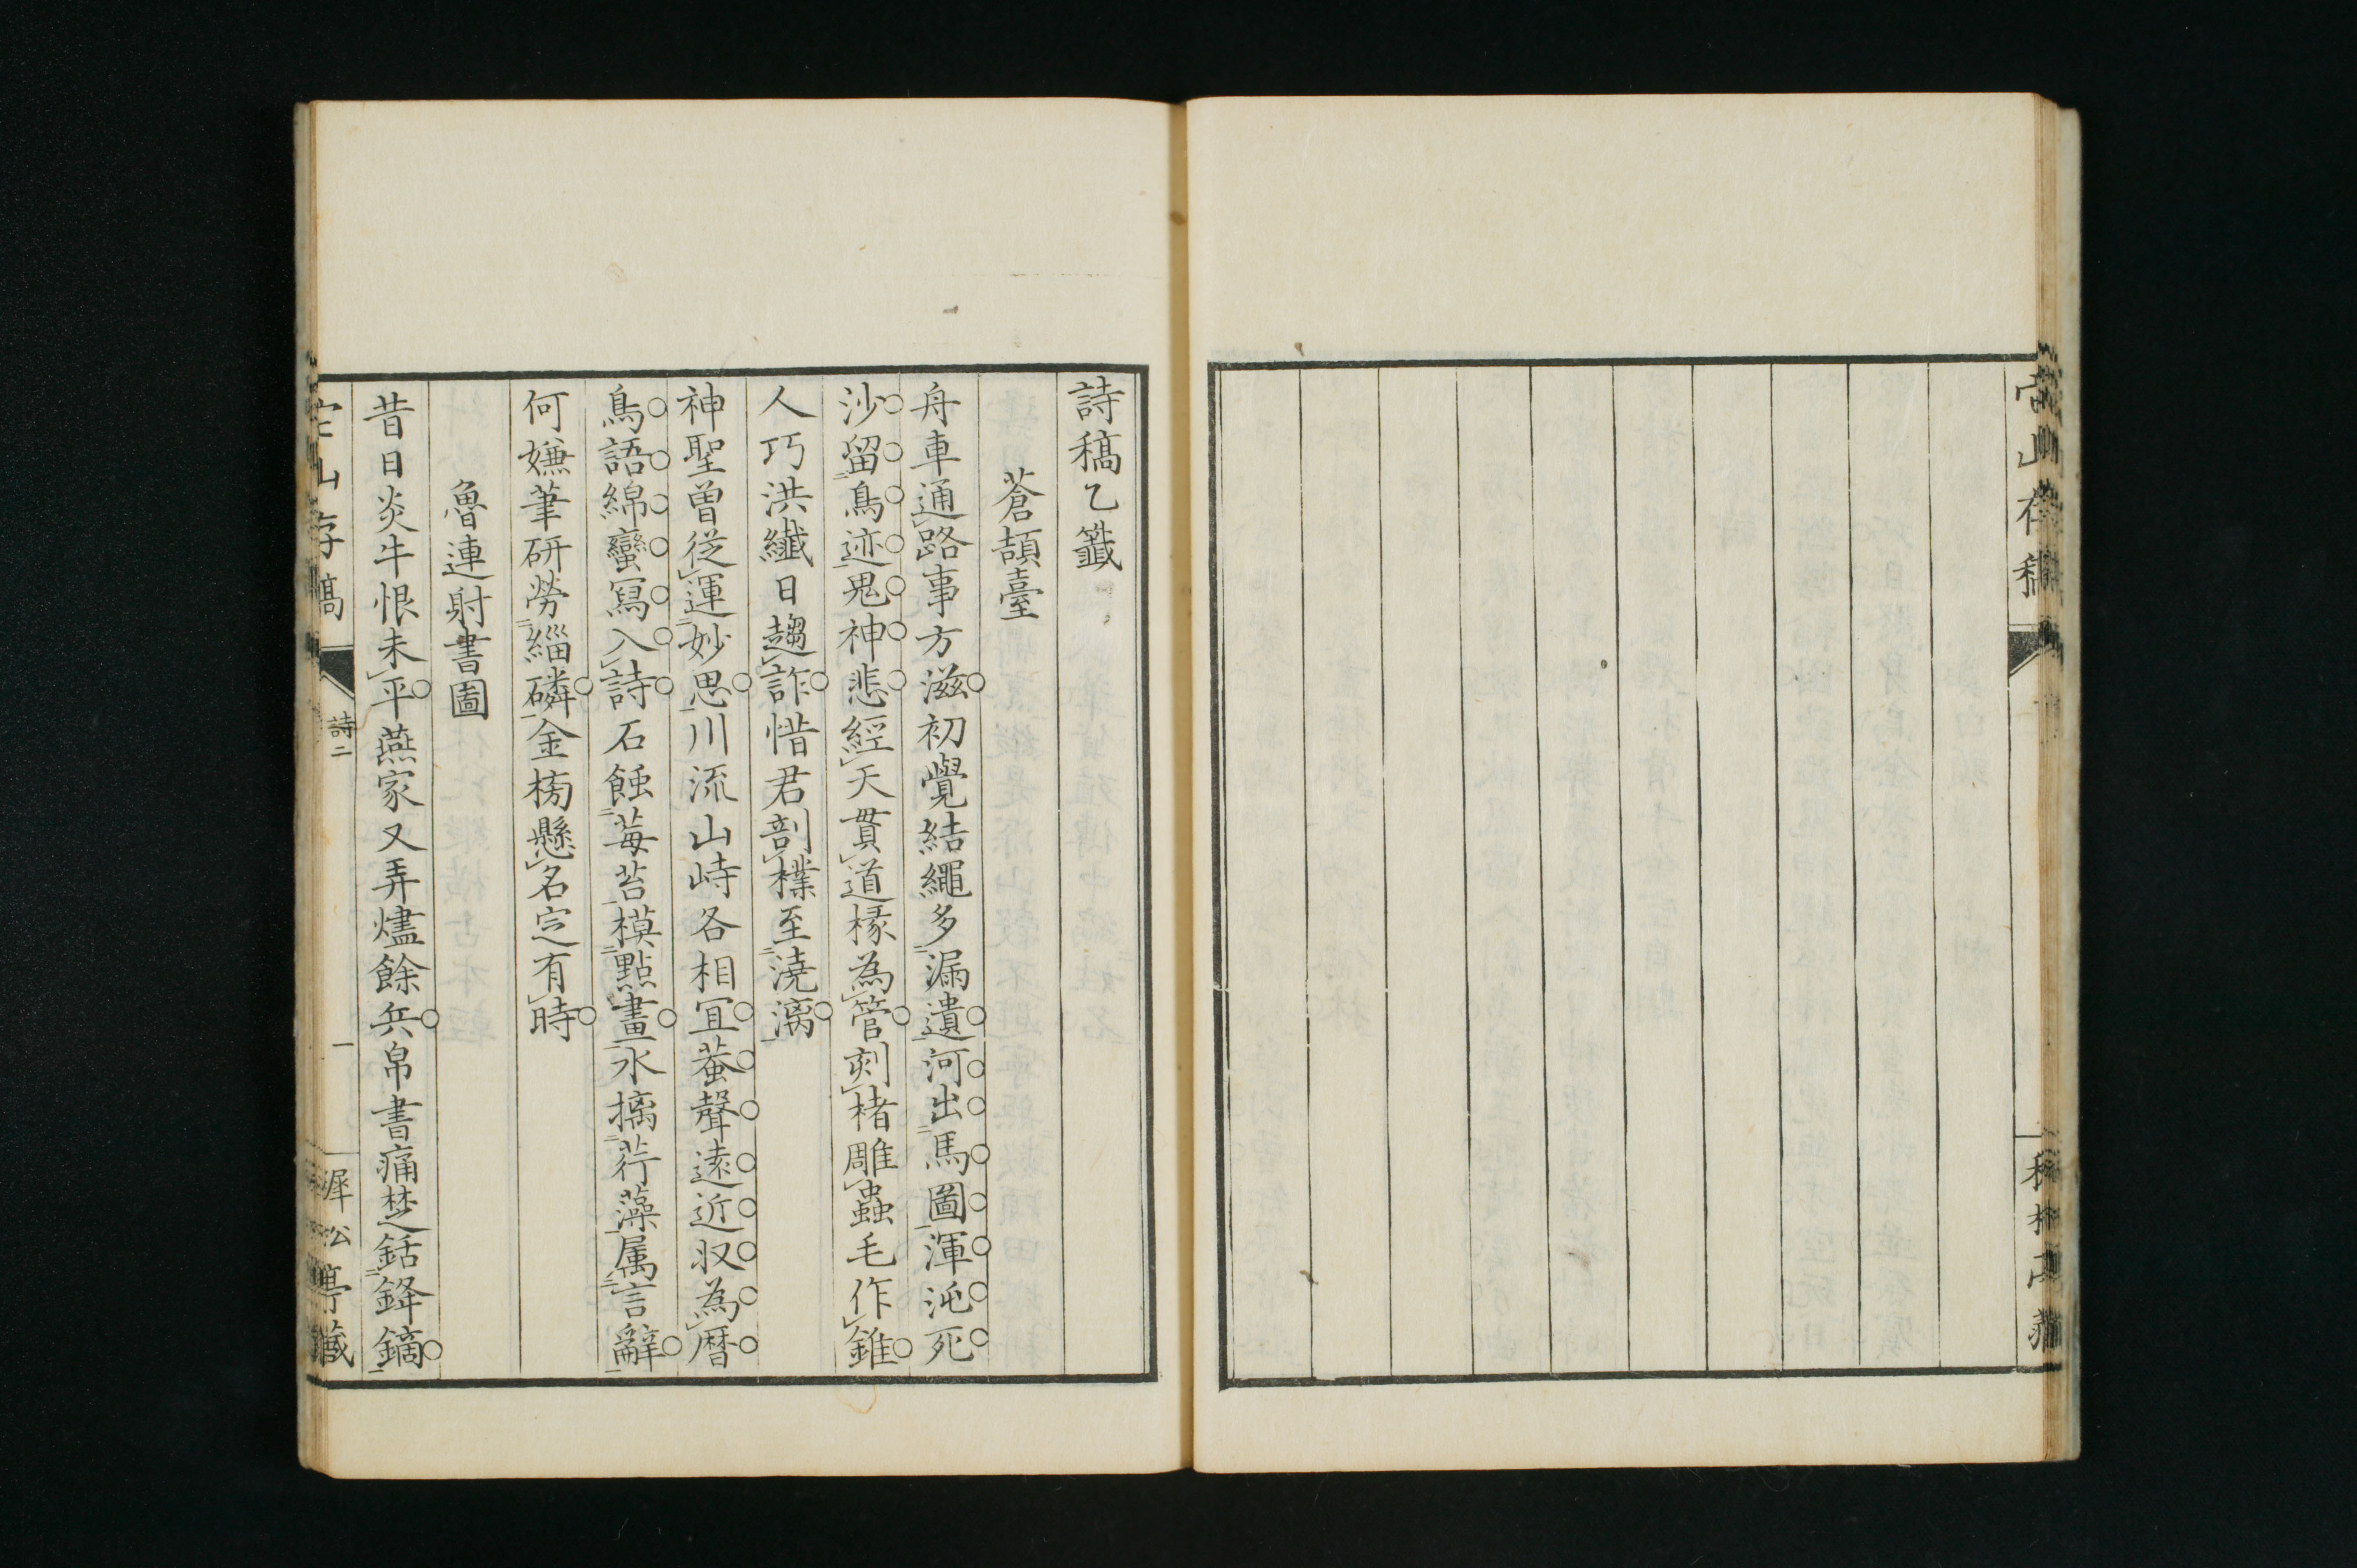 詩稿乙籤
蒼頡臺
舟車通路事方滋初覺結繩多漏遺河出馬圖渾沌死
沙留鳥迹鬼神悲經天貫道椽為管刻楮雕蟲毛作錐
人巧洪纖日趨詐惜君剖樸至澆漓
神聖曾從運妙思川流山峙各相宜蚕聲遠近収為暦
鳥語綿蠻寫入詩石蝕莓苔模點畫水摛荇藻属言辭
何嫌筆研勞緇磷金榜懸名定有時
魯連射書圖
昔日炎牛恨未平燕家又弄燼餘兵帛書痛楚銛鋒鏑
山存稿
詩二
一
犀松亭藏